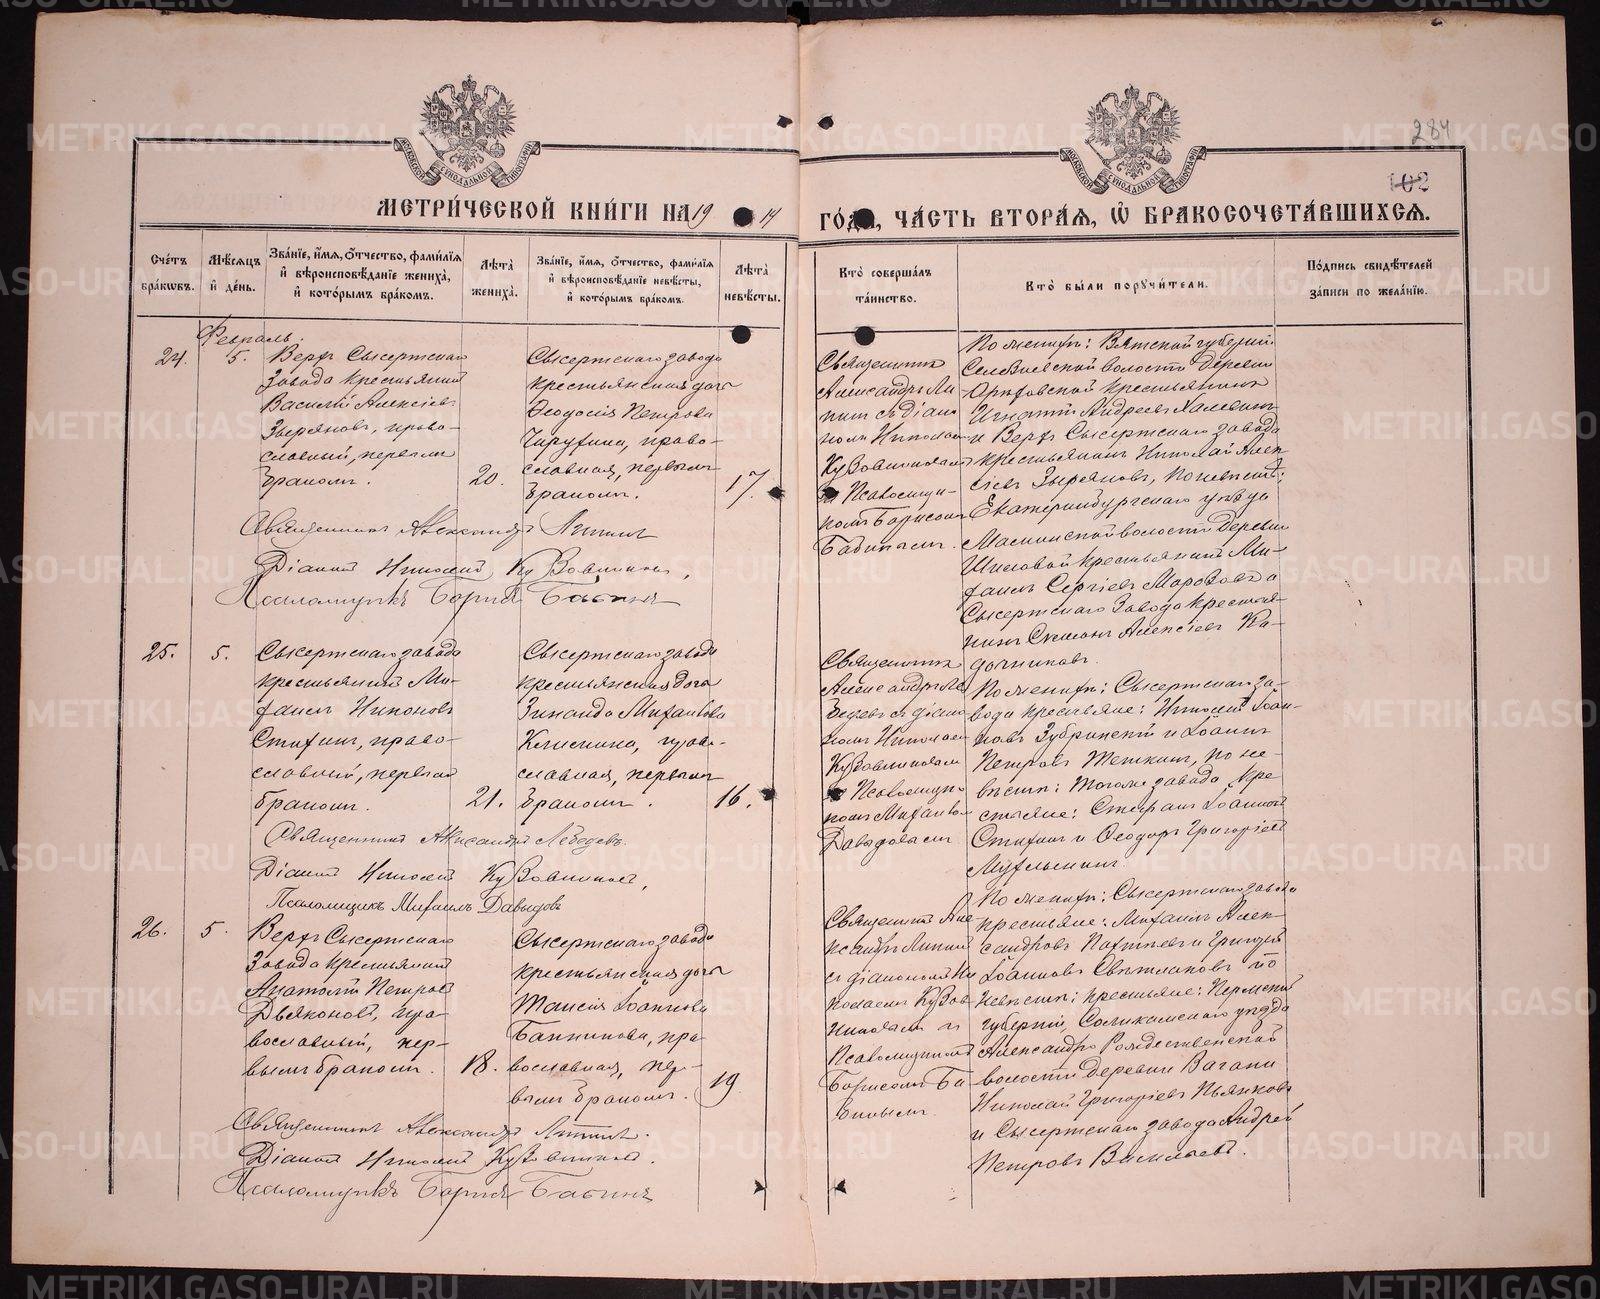 284
102
МОСКОВСКОЙ СУНОДАЛЬНОЙ ТИПОГРАФІИ
МОСКОВСКОЙ СУНОДАЛЬНОЙ ТИПОГРАФІИ
МЕТРИ́ЧЕСКОЙ КНИ́ГИ НА 1914 ГО́ДА, ЧА́СТЬ ВТОРА́Я, Ѡ БРАКОСОЧЕТА́ВШИХСЯ.
Сче́тъ бра́кѡвъ.
Мѣ́сяцъ и҆ де́нь.
Зва́нїе, и҆́мя, ѻ҆́тчество, фами́лїя
и҆ вѣроисповѣ́данїе жениха̀,
и҆ кото́рымъ бра́комъ.
Лѣ́та жениха̀.
Зва́нїе, и҆́мя, ѻ҆́тчество, фами́лїя
и҆ вѣроисповѣ́данїе невѣ́сты,
и҆ кото́рымъ бра́комъ.
Лѣ́та невѣ́сты.
Кто̀ соверша́лъ та́инство.
Кто̀ бы́ли порꙋчи́тели.
По́дпись свидѣ́телей за́писи по жела́нїю.
Февраль.
24.
5.
Верхъ Сысертскаго
Завода крестьянинъ
Василій Алексіевъ
Зыряновъ, право-
славный, первымъ
бракомъ.
20.
Сысертскаго завода
крестьянская дочь
Ѳеодосія Петрова
Чирухина, право-
славная, первымъ
бракомъ.
17.
Священникъ
Александръ Ли
пинъ съ діако
номъ Николаемъ
Кузовниковымъ
и Псаломщи-
комъ Борисомъ
Бабинымъ.
По женихѣ: Вятской губерніи
волости деревни
крестьянинъ
Игнатій Андреевъ
и Верхъ Сысертскаго завода
крестьянинъ Николай Алек
сіевъ Зыряновъ, по невѣстѣ:
Екатеринбургскаго уѣзда
волости деревни
крестьянинъ Ми-
хаилъ Сергіевъ Морозовъ и
Сысертскаго Завода крестья-
нинъ Симонъ Алексіевъ Ка-
дочниковъ.
Священникъ Александръ Липинъ
Діаконъ Николай Кузовниковъ,
Псаломщикъ Борисъ Бабинъ
25.
5.
Сысертскаго завода
крестьянинъ Ми-
хаилъ Никоновъ
Стихинъ, право-
славный, первымъ
бракомъ.
21.
Сысертскаго завода
крестьянская дочь
Зинаида Михаилова
право-
славная, первымъ
бракомъ.
16.
Священникъ
Александръ Ле
бедевъ съ діако
номъ Николаемъ
Кузовниковымъ
и Псаломщи
комъ Михаило
Давыдовымъ
По женихѣ: Сысертскаго за-
вода крестьяне: Николай Іоан-
новъ Зубринскій и Іоаннъ
Петровъ Теткинъ, по не-
вѣстѣ: того же завода кре
стьяне: Стефанъ Іоанновъ
Стихинъ и Ѳеодоръ Григоріевъ
Священникъ Александръ Лебедевъ.
Діаконъ Николай Кузовниковъ,
Псаломщикъ Михаилъ Давыдовъ
26.
5.
Верхъ Сысертскаго
Завода крестьянинъ
Анатолій Петровъ
Дьяконовъ, пра-
вославный, пер-
вымъ бракомъ.
18.
Сысертскаго завода
крестьянская дочь
Таисія Іоаннова
Банникова, пра-
вославная, пер-
вымъ бракомъ.
19
Священникъ Але
ксандръ Липинъ
съ діакономъ Ни
колаемъ Кузов
никовымъ и
Псаломщикомъ
Борисомъ Ба
бинымъ.
По женихѣ: Сысертскаго завода
крестьяне: Михаилъ Алек-
сандровъ и Григорій
Іоанновъ Свѣтлаковъ по
невѣстѣ: крестьяне: Пермской
губерніи, Соликамскаго уѣзда
Александро Рождественской
волости деревни
Николай Григоріевъ Пьянковъ
и Сысертскаго завода Андрей
Петровъ Васильевъ.
Священникъ Александръ Липинъ.
Діаконъ Николай Кузовниковъ.
Псаломщикъ Борисъ Бабинъ
METRIKI.GASO-URAL.RU